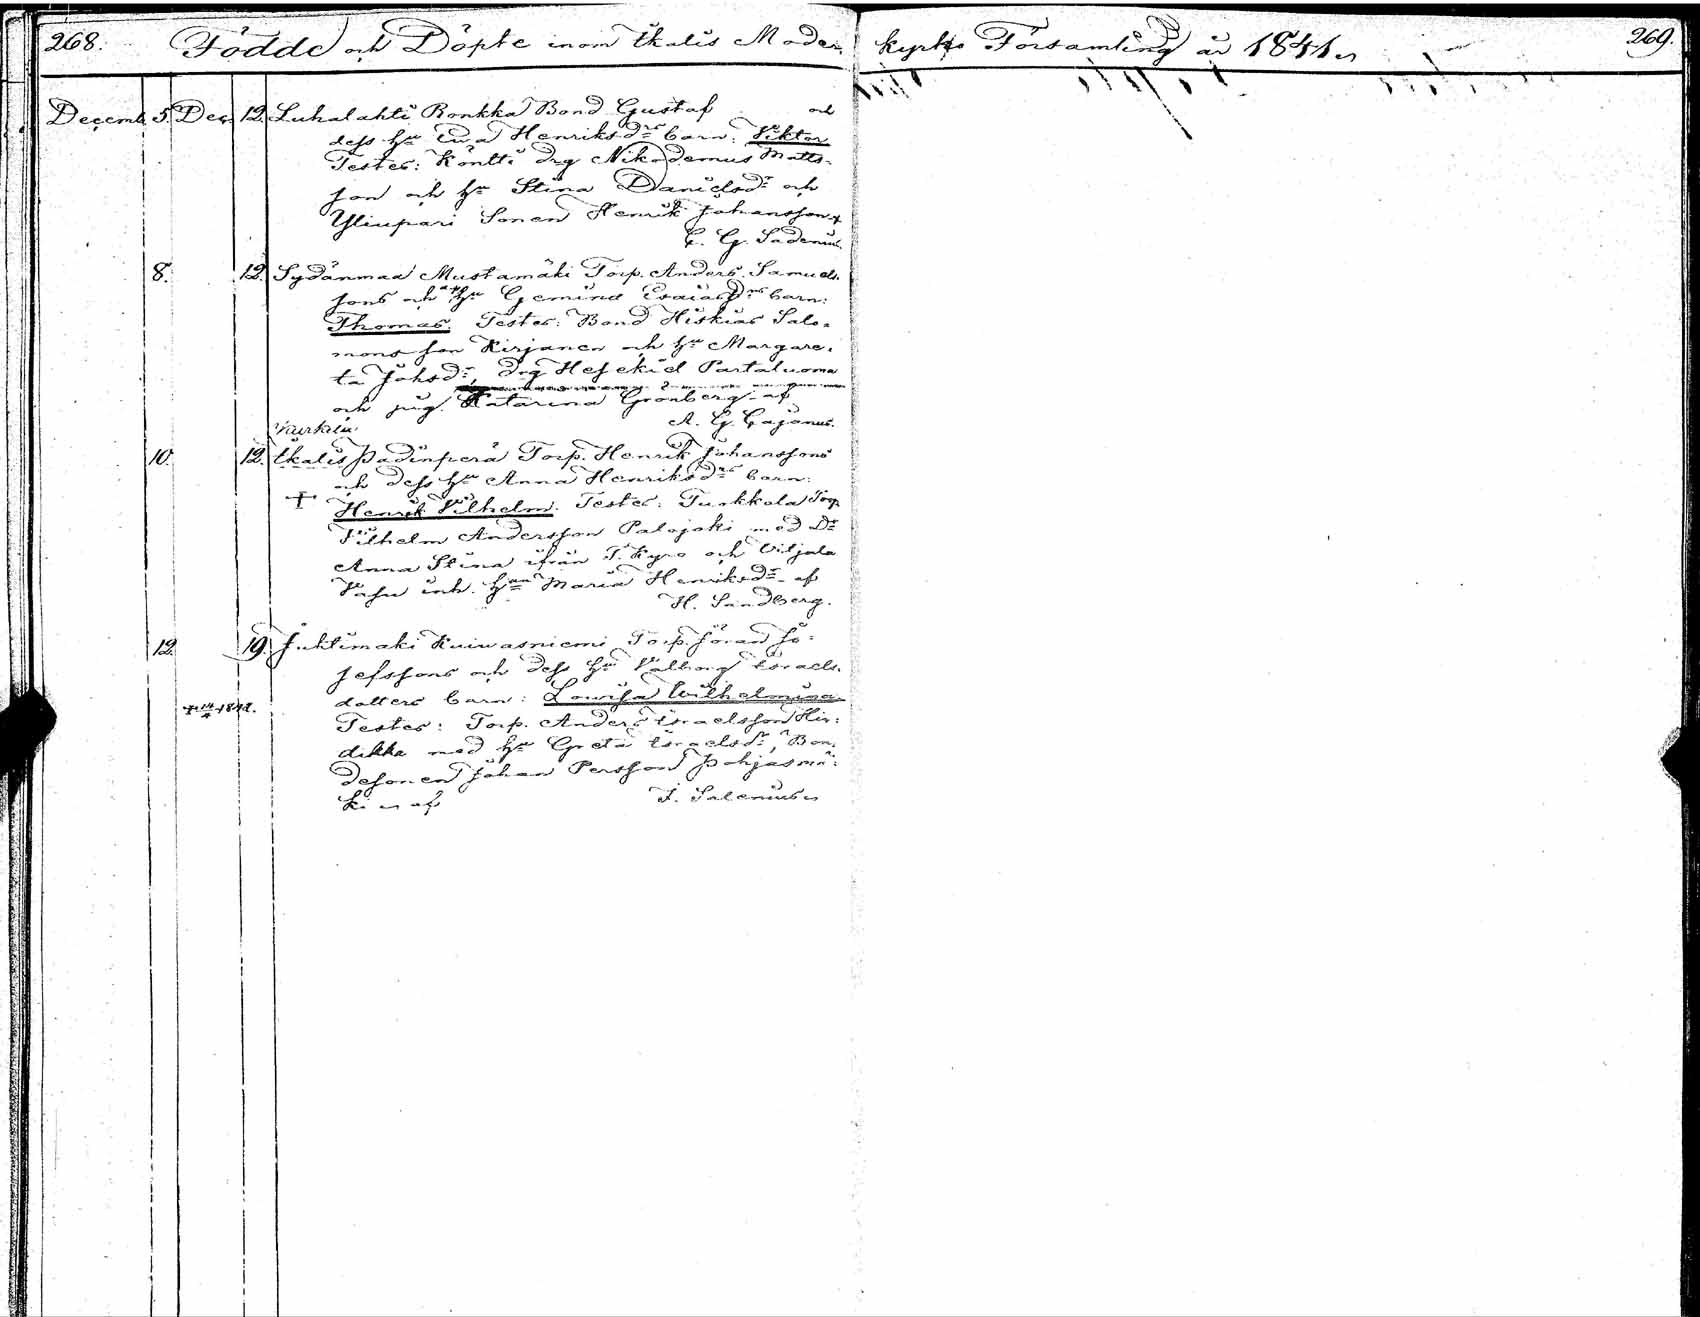 268. Födde och Döpte inom Ikalis Moder kyrko Församling år 1841 269.
Decemb. 5. Dec. 12. Luhalahti Ronkka Bond Gustaf och
dess hu Ewa Henriksdrs barn: Viktor
Testes: Köntti drg Nikodemus Matts-
son och hu Stina Danielsdr och
Yliupari Sonen Henrik Johansson
C. G. Sadenius.
8. 12. Sydänmaa Mustamäki Torp. Anders Samuels
sons och hu Gemina Esaiasdrs barn:
Thomas. Testes: Bond Hiskias Salo-
mons son Kirjanen och hu Margare-
ta Johsdr, drg Hesekiel Partaluoma
och pig. Katarina Grönberg af
A. G. Cajanus.
10. 12. Ikalis Padinperä Torp. Henrik Johanssons
och dess hu Anna Henriksdrs barn:
+ Henrik Vilhelm. Testes: Turkkola Torp
Vilhelm Andersson Palojoki med Dr
Anna Stina ifrån T. Kyro och Viljala
Vasu inh. hun Maria Henriksdr af
H. Sandberg.
12. 19. Juhtimäki Kuiwasniemi Torp. Jöran Jo-
sefssons och dess hu Valborg Israels
dotters barn: Lowisa Wilhelmina
Testes: Torp. Anders Israelsson Hir-
dikka med hu Greta Israelsdr, Bon-
desonen Johan Persson Pohjasmä-
ki af F. Salenius